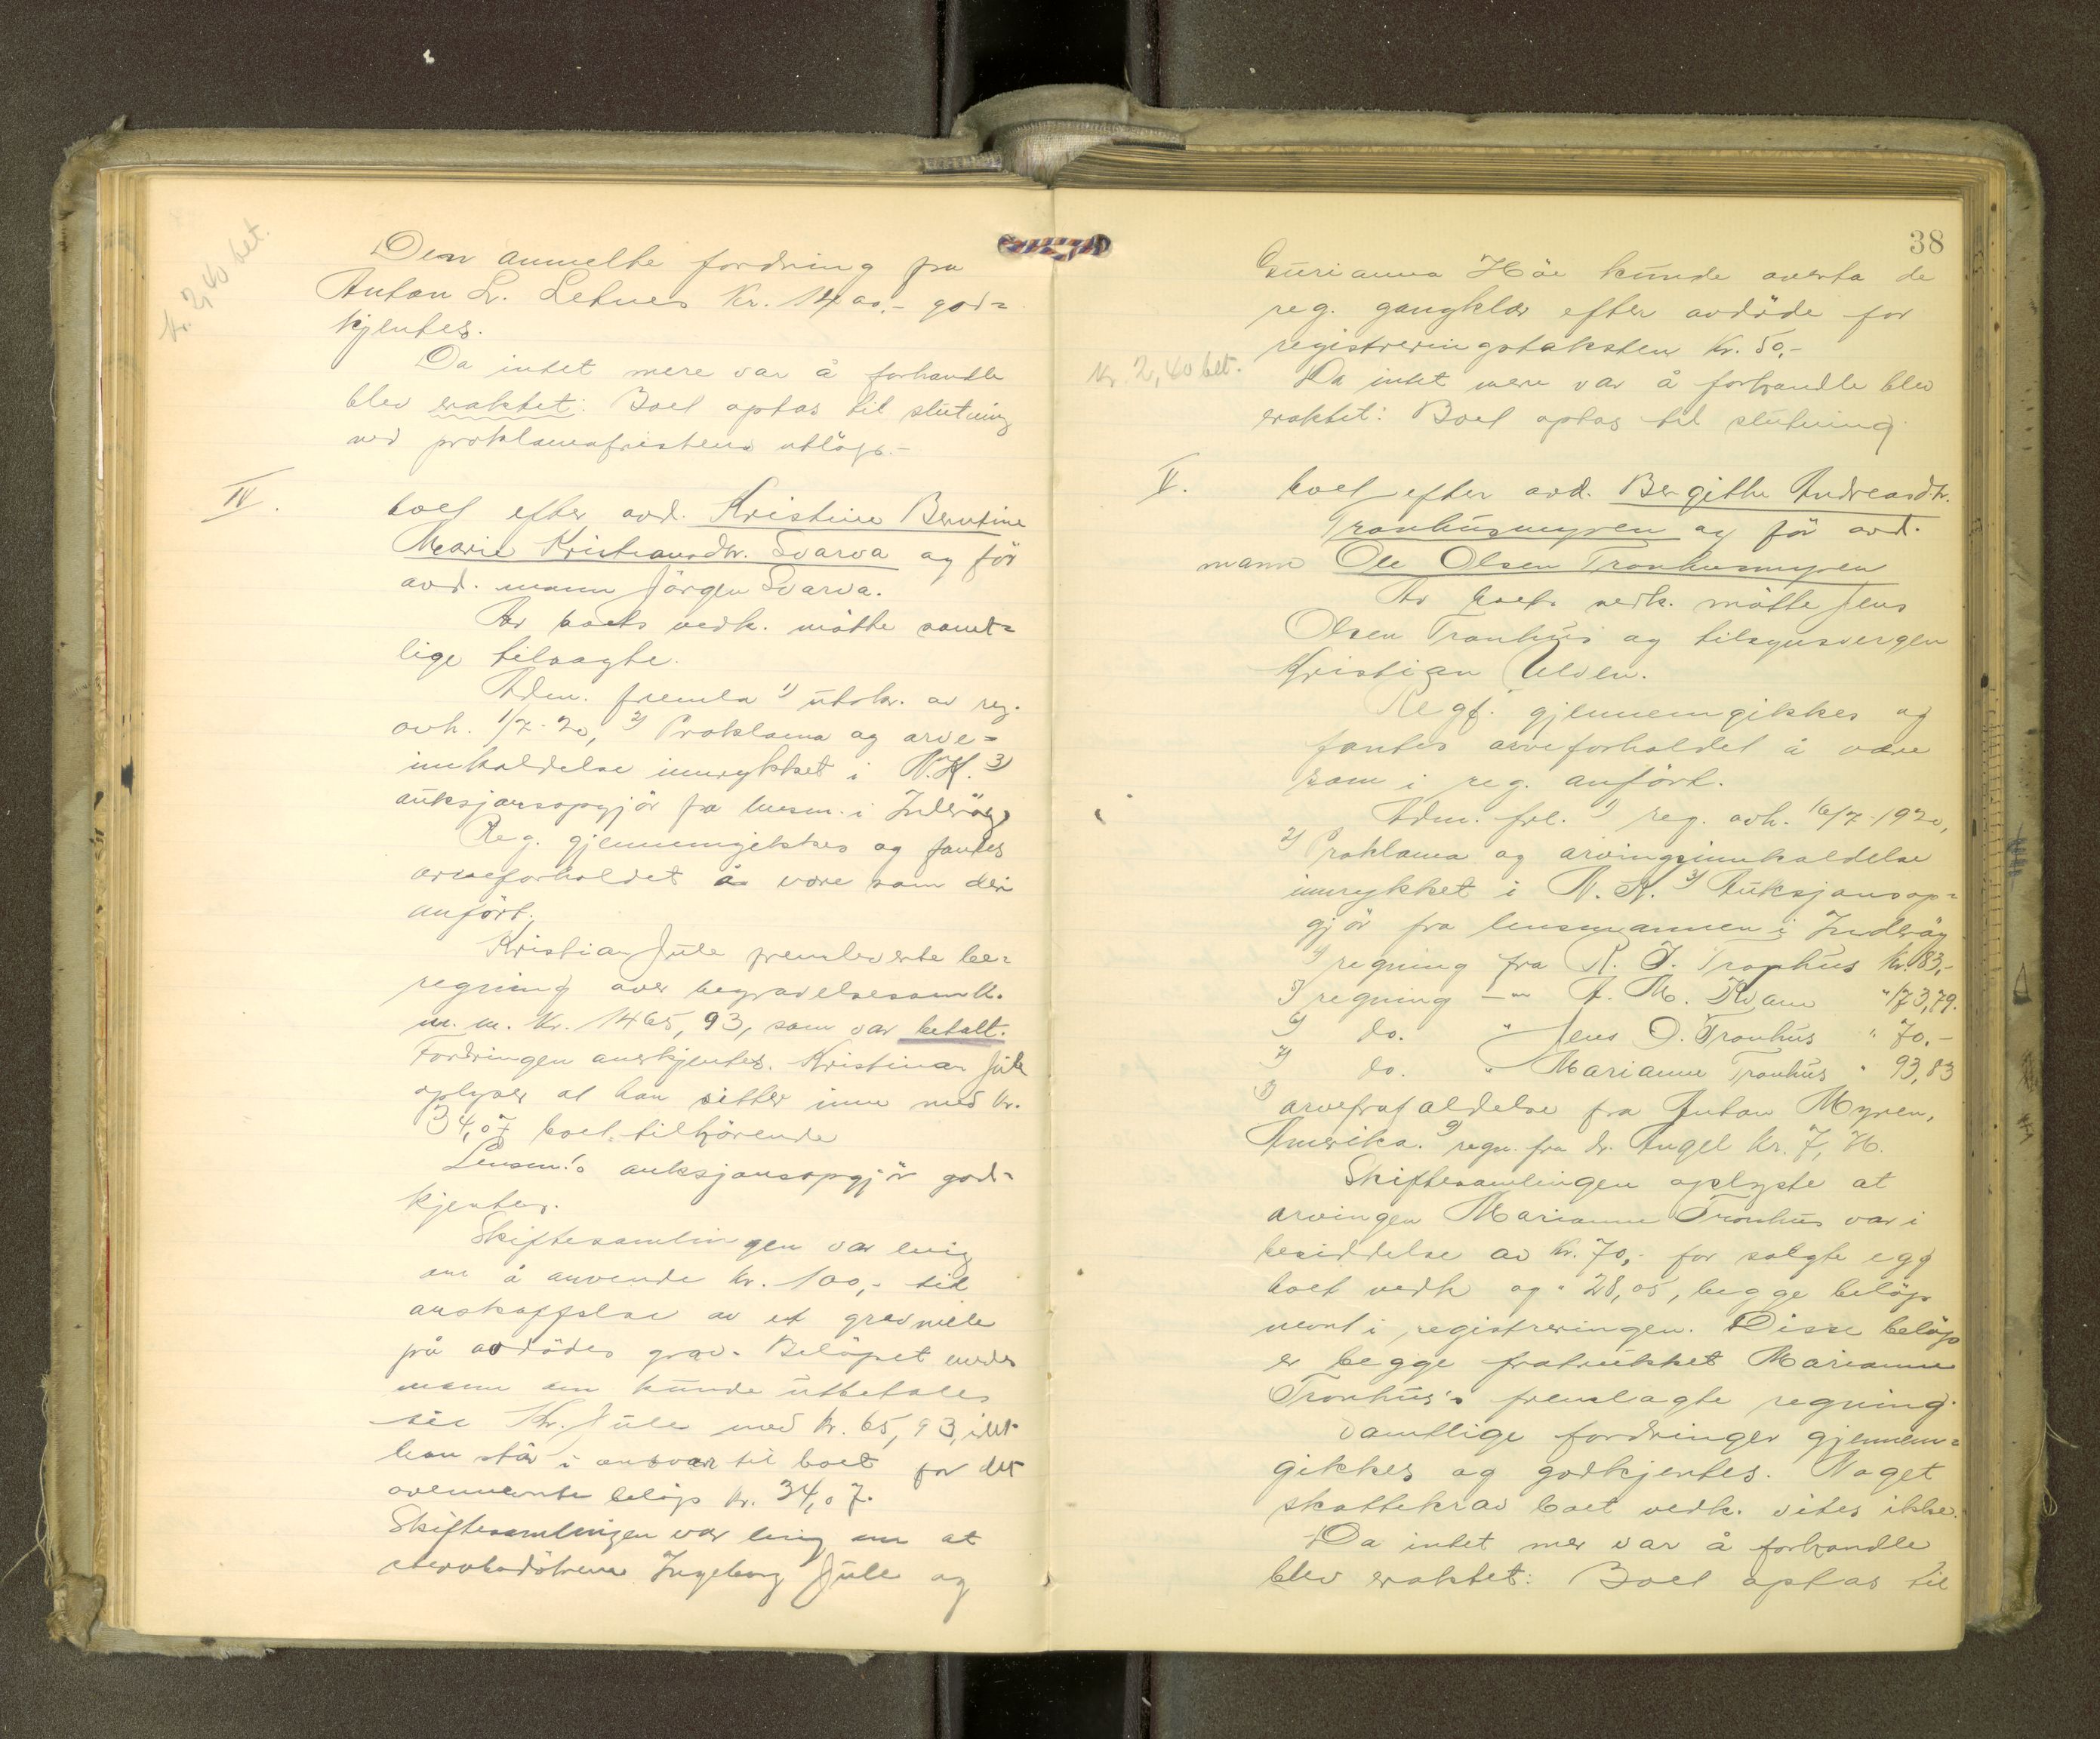 Kr. 2,40 bet.
Den anmelte fordring fra
Anton Lr. Letnes Kr. 1400.- god=
kjentes.
Da intet mere var å forhandle
blev eraktet: Boet optas til slutning
ved proklamafristens utløp.-
IV. boet efter avd. Kristine Berntine
Marie Kristiansdtr. Svarva og før
avd. mann Jörgen Svarva.
Av boets vedk. møtte samt=
lige tilsagte.
Adm. fremla 1) utskr. av reg.
avh. 1/7-20, 2) Proklama og arve=
innkaldelse innrykket i N.K. 3)
auksjonsopgjör fra lensm. i Inderöy
Reg. gjennemgikkes og fantes
arveforholdet å være som deri
anfört.
Kristian Jule fremleverte be=
regning over begravelsesomk.
m.m. Kr. 1465,93, som var betalt.
Fordringen anerkjentes. Kristian Jule
oplyser at han sitter inne med kr.
34,07 boet tilhörende
Lensm.'s auksjonsopgjör god=
kjentes.
Skiftesamlingen var enig
om å anvende kr. 100,- til
anskaffelse av et gravmele
på avdödes grav. Belöpet
mann om kunde utbetales
til Kr. Jule med kr. 65,93, idet
han står i ansvar til boet for det
ovennevnte belöp kr. 34,07.
Skiftesamlingen var enig om at
stervbodötrene Ingeborg Jule og
38
Gurianna Häe kunde overta de
reg. gangklær efter avdöde for
registreringstaksten Kr. 50,-
Kr. 2,40 bet.
Da intet mere var å forhandle blev
eraktet: Boet optas til slutning.
V. boet efter avd. Bergithe Andreasdtr.
Tronhusmyren og før avd.
mann Ole Olsen Tronhusmyren
Av boets vedk. møtte Jens
Olsen Tronhus og tilsynsvergen
Kristian Ulven.
Regf. gjennemgikkes og
fantes arveforholdet å være
som i reg. anfört.
Adm. frl. 1) reg. avh. 16/7-1920,
2) Proklama og arvingsinnkaldelse
innrykket i N.K. 3) Auksjonsop=
gjör fra lensmannen i Inderöy
4) regning fra R. J. Tronhus kr. 83,-
5) regning -"- A. M. Kvam " 173,79.
6) do. " Jens O. Tronhus " 70.-
7) do. " Marianne Tronhus " 93,83
8) arvefrafaldelse fra Anton Myren,
Amerika. 9) regn. fra dr. Angel kr. 7,40.
Skiftesamlingen oplyste at
arvingen Marianne Tronhus var i
besiddelse av Kr. 70,- for solgte egg
boet vedk og " 28,05, begge belöp
nevnt i registreringen. Disse belöp
er begge fratrukket Marianne
Tronhus's fremlagte regning.
Samtlige fordringer gjennem=
gikkes og godkjentes. Noget
skattekrav boet vedk. vites ikke.
Da intet mer var å forhandle
blev eraktet: Boet optas til